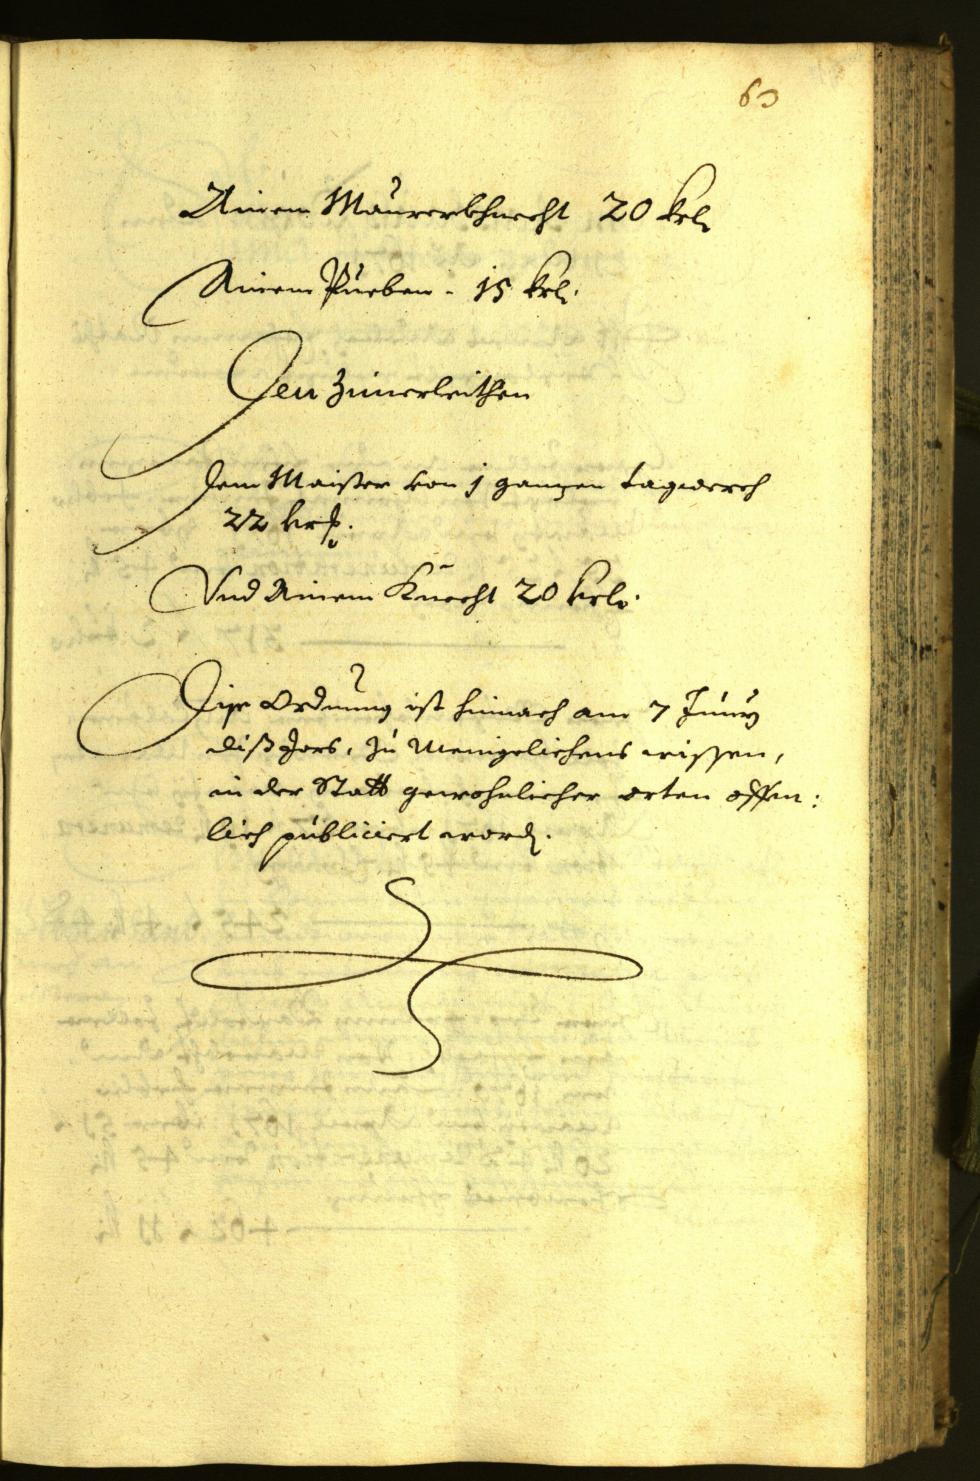 63
Ainem Maurerkhnecht 20 krl.
Ainem Pueben - 15 krl.
Den Zimerleithen
Dem Maister von 1 ganzen tagwerch
22 krl.
Und Ainem Knecht 20 krl.
Dise Ordnung ist hinnach am 7 Juny
diß Jars, zu Meniges­lichens wissen,
in der Statt gewohnlicher orten offen:
lich publiciert word.